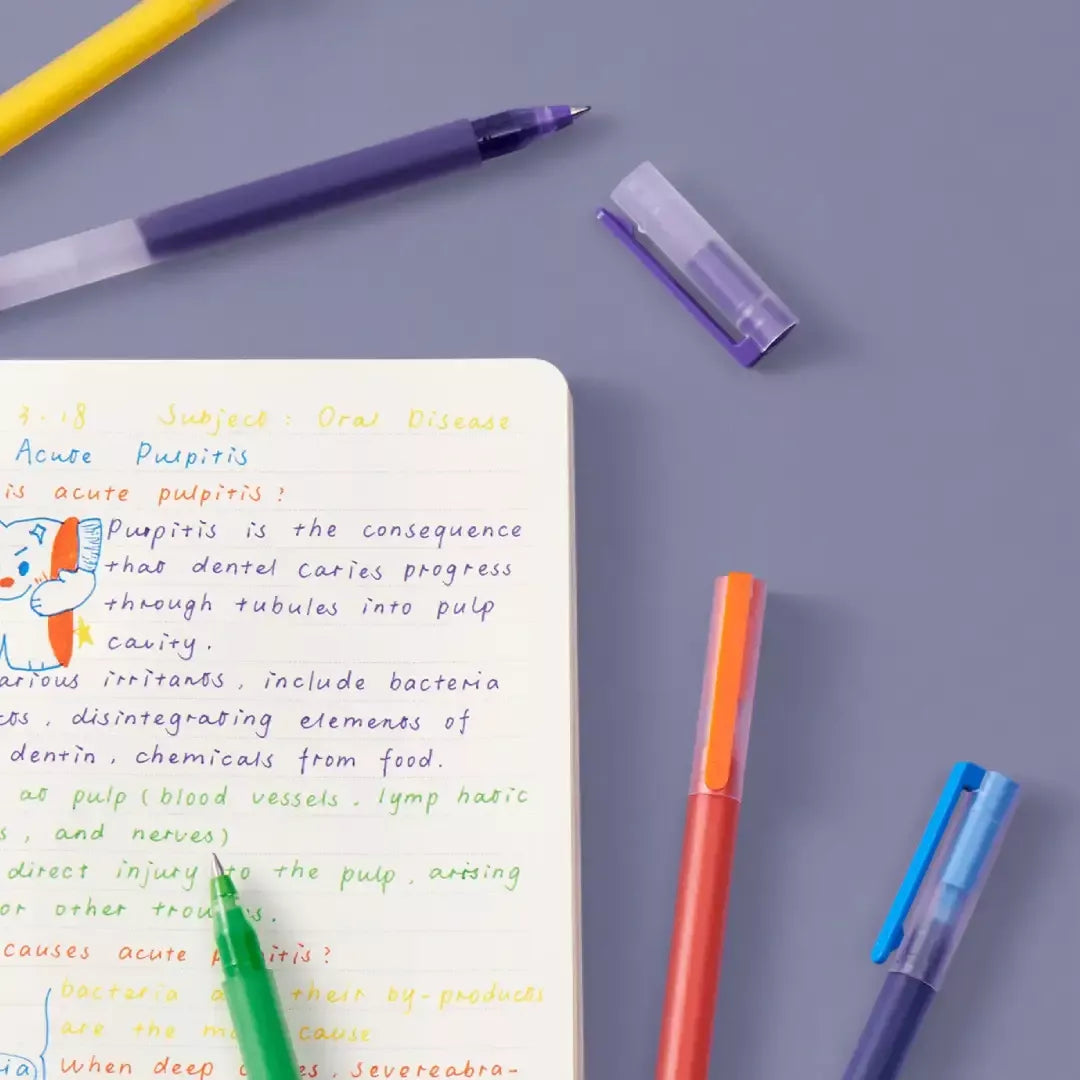 3.18 Subject: Oral Disease
Acute Pulpitis
is acute pulpitis?
Pulpitis is the consequence
that dentel caries progress
through tubules into pulp
cavity.
arious irritants, include bacteria
cts, disintegrating elements of
dentin, chemicals from food.
at pulp (blood vessels, lymp hatic
s, and nerves)
direct injury to the pulp, arising
or other trou s.
causes acute p itis?
bacteria a their by-products
are the ma cause
ia When deep c es, severeabra-